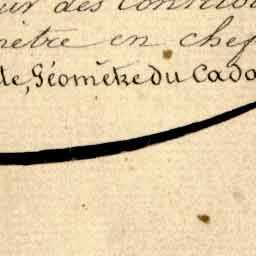 ur des Contribu
mètre en chef
le, Géomètre du Cada